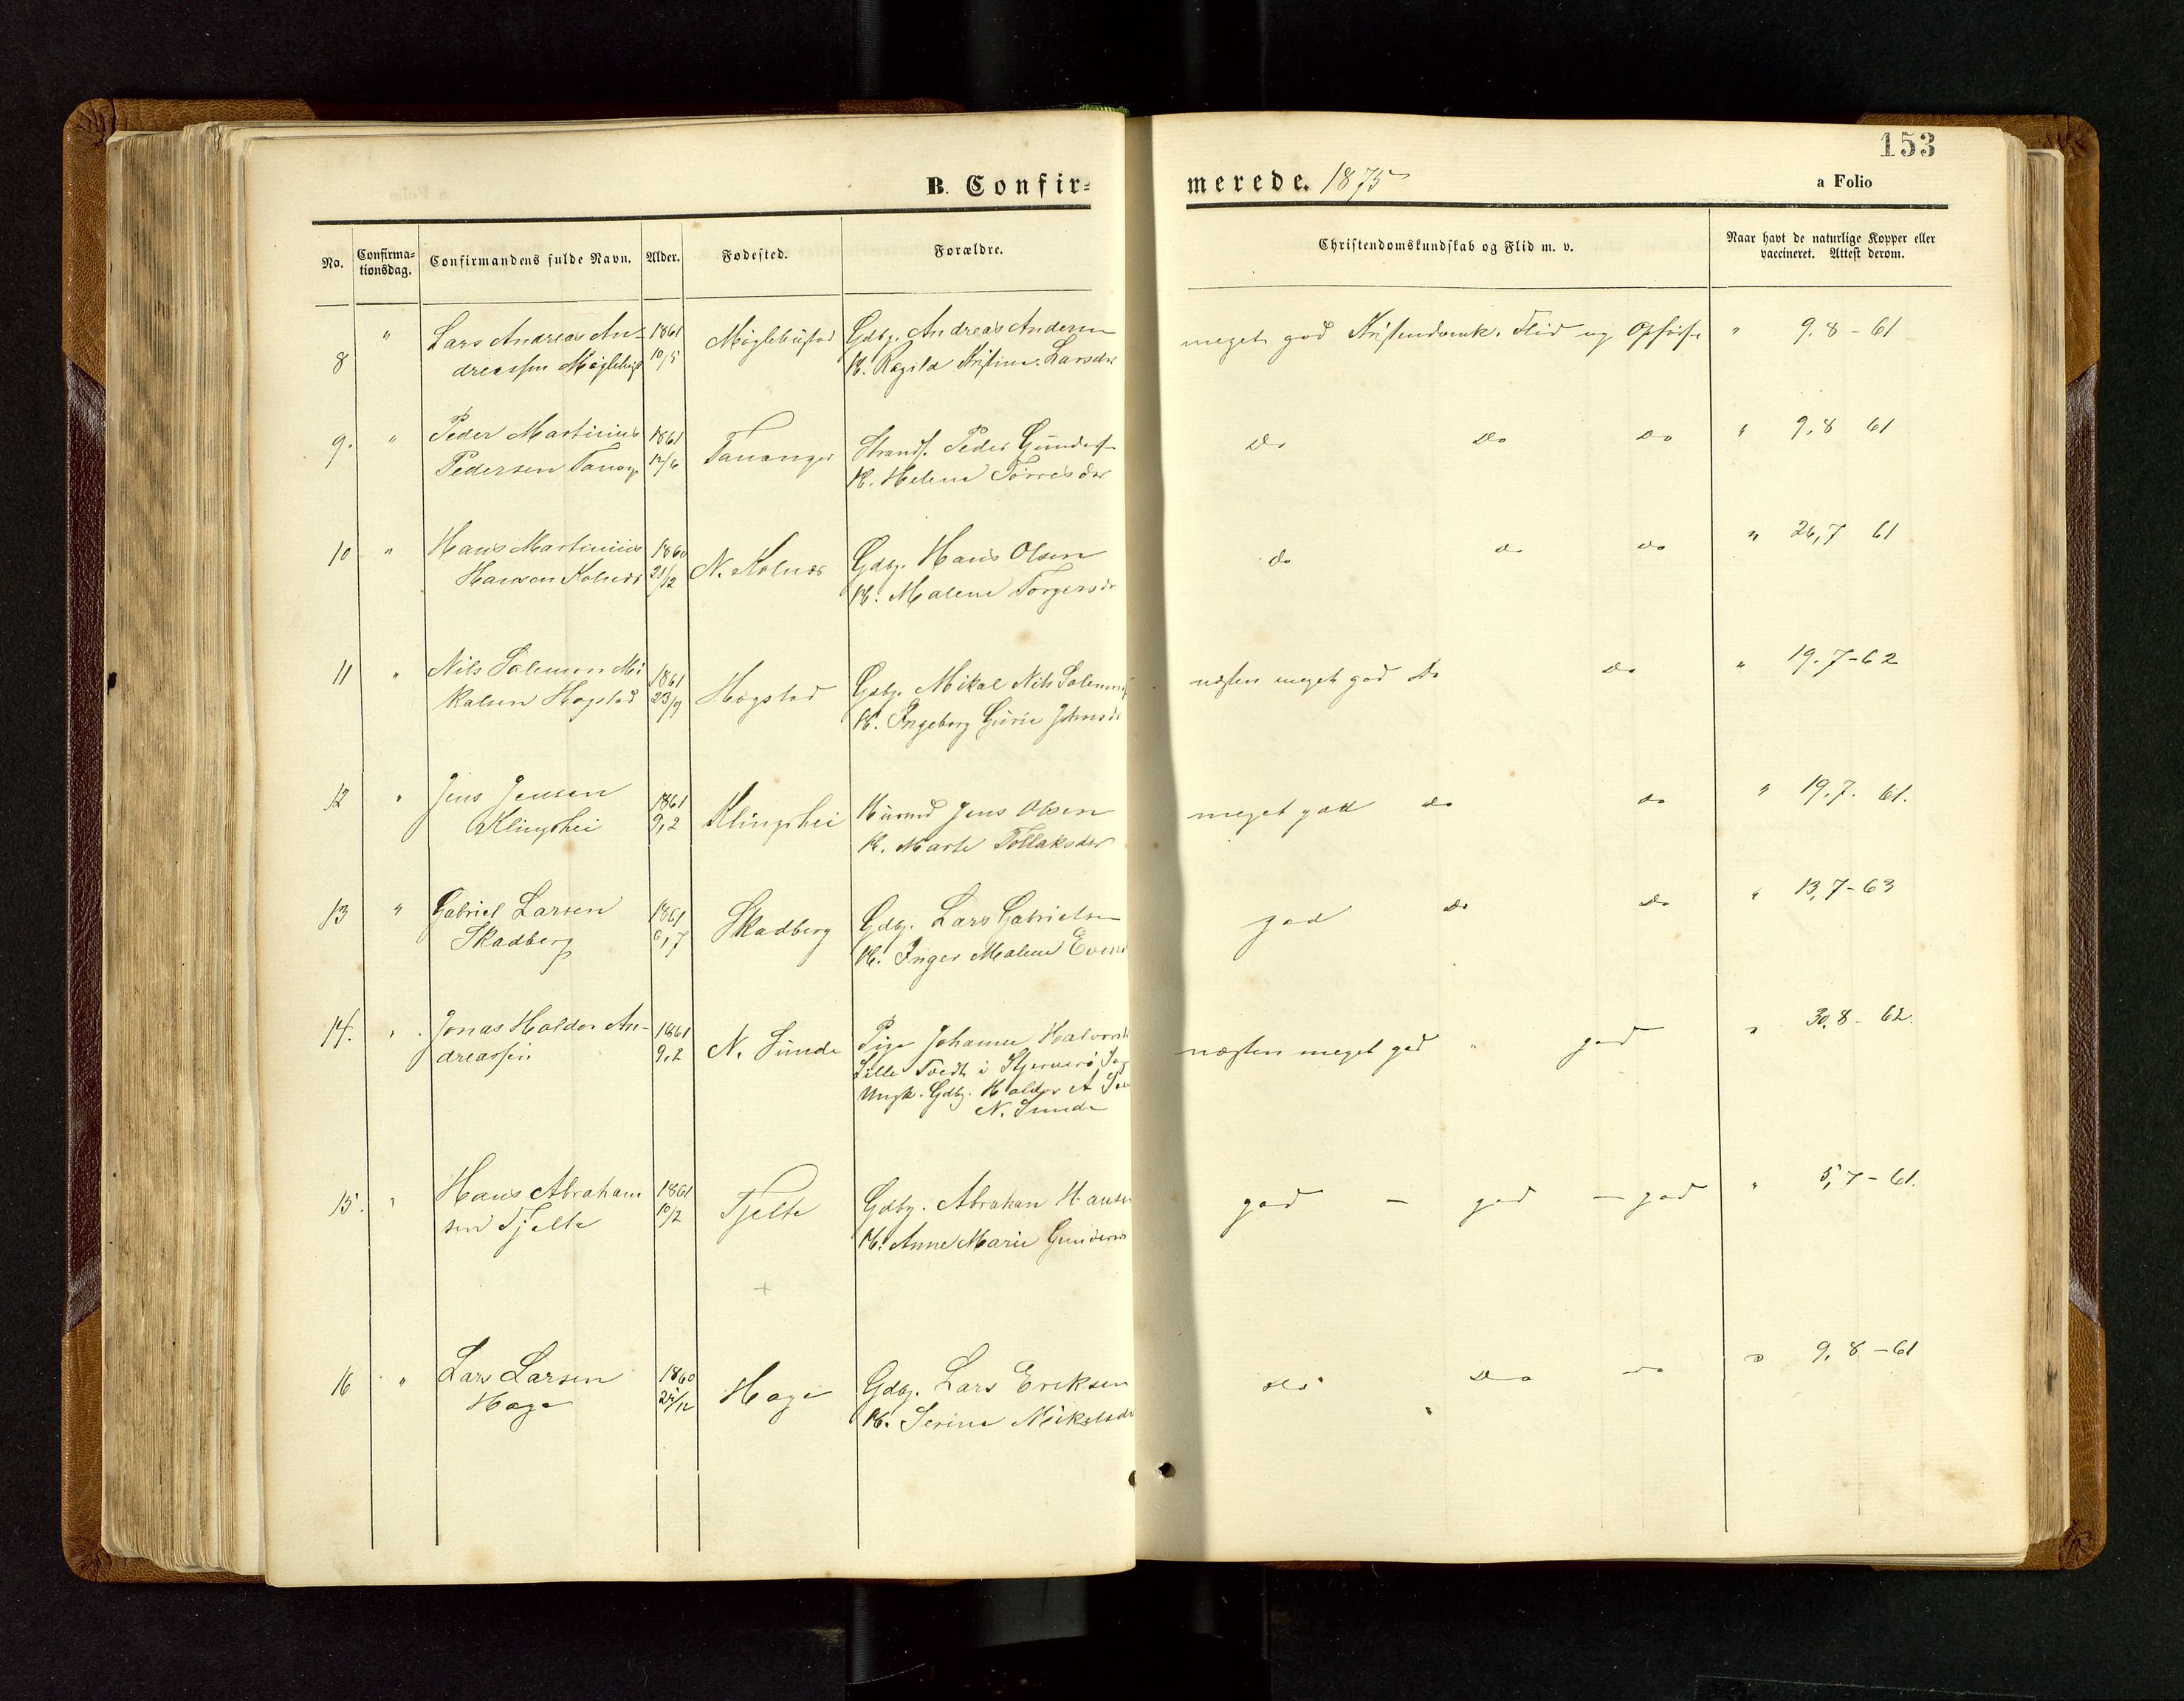 153
B. Confir=
merede. 1875
a Folio
No. Confirma=tionsdag. Confirmandens fulde Navn. Alder. Fødested. Forældre. Christendomskundskab og Flid m. v. Naar havt de naturlige Kopper eller vaccineret. Attest derom.
8 " Lars Andreas An- 1861 Møglebustad Gdbr. Andreas Andersen meget god Kristendomsk. Flid og Opførsel " 9.8-61
dreassen 10/5 K. Ragila Kristine Larsdtr
9. " Peder Martinius 1861 Tananger Strands. Peder Gunders Do Do Do " 9,8 61
Pedersen Tanang 12/6 K. Helene Tørresdtr
10 " Hans Martinius 1860 N. Kolnæs Gdbr. Hans Olsen do do do " 26,7 61
Hansen Kolnæs 21/12 K. Malene Torgersdr
11 " Nils Salemon Mi 1861 Høgstad Gdbr. Mikal Nils Salemons næsten meget god Do Do " 19.7-62
kalsen Høgstad 23/9 K. Ingeborg Gurie Johnsd
12 " Jens Jensen 1861 Klingshei Husmd Jens Olsen meget godt do do " 19.7. 61.
Klingshei 9,2 K. Marte Tollaksdtr
13 " Gabriel Larsen 1861 Skadberg Gdbr. Lars Gabrielsen god do do " 13,7-63
Skadberg 6,7 K. Inger Malene Even
14. " Jonas Haldor An- 1861 N. Sunde Pige Johanne Halvorsd næsten meget god " god " 30,8-62.
dreassen 9,2 Lille Tvedt i Stjernerø
Ungk. Gdbr. Haldor A
N. Sunde
15. " Hans Abraham 1861 Tjelte Gdbr. Abraham Hansen god - god - god " 5,7-61.
sen Tjelte 10/2 K. Anne Marie Gunders
16 " Lars Larsen 1860 Haga Gdbr. Lars Eriksen do Do do " 9,8-61
Haga 25/12 K. Serina Mikelsd